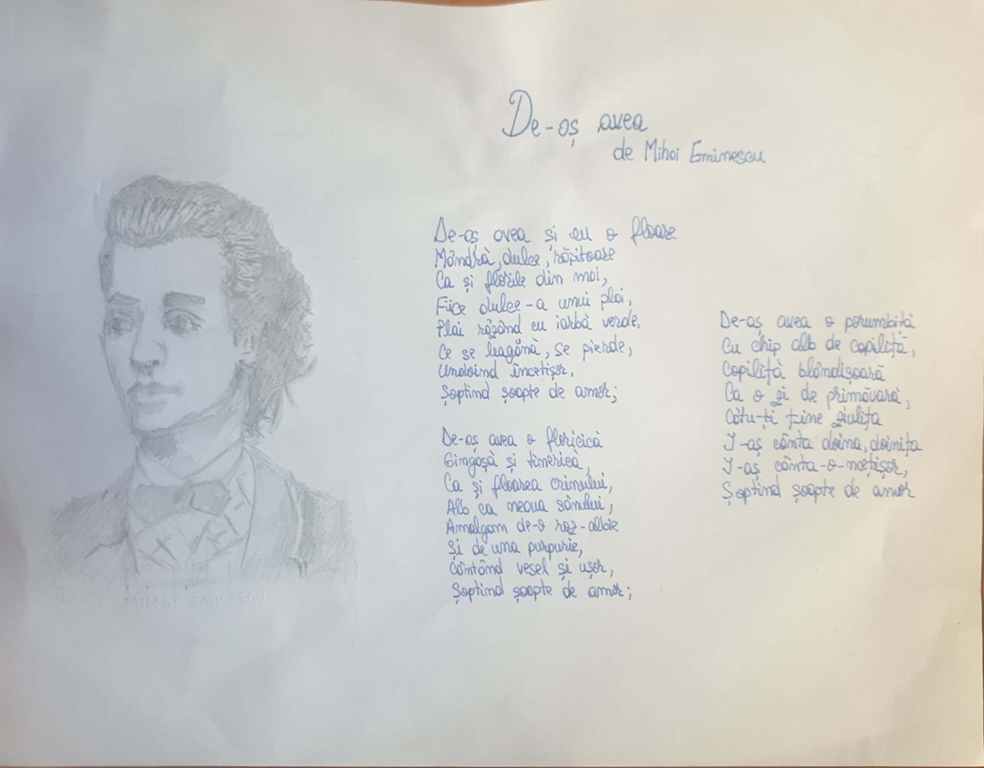 De-aș avea
de Mihai Eminescu
De-aș avea și eu o floare
Mândră, dulce, răpitoare
Ca și florile din mai,
Fiice dulce-a unui plai,
Plai râzând cu iarbă verde,
Ce se leagănă, se pierde,
Undoind încetișor,
Șoptind șoapte de amor;
De-aș avea o floricică
Gingașă și tinerică,
Ca și floarea crinului,
Alb ca neaua sânului,
Amalgam de-o raz-albie
Și de una purpurie,
Cântând vesel și ușor,
Șoptind șoapte de amor;
De-aș avea o porumbiță
Cu chip alb de copiliță,
Copiliță blândișoară
Ca o zi de primăvară,
Câtu-ți ține ziulița
I-aș cânta doina, doinița
I-aș cânta-o-ncetișor,
Șoptind șoapte de amor